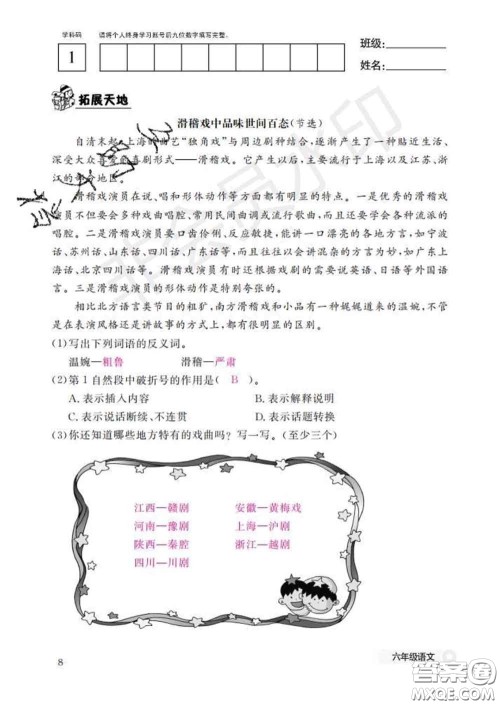 学科码
请将个人终身学习账号后九位数字填写完整。
1
班级:
姓名:
拓展天地
滑稽戏中品味世间百态(节选)
自清末起,上海的曲艺“独角戏”与周边剧种结合,逐渐产生了一种贴近生活、
深受大众喜爱的喜剧形式——滑稽戏。它产生以后,主要流行于上海以及江苏、浙
江的部分地区。
滑稽戏演员在说、唱和形体动作等方面都有明显的特点。一是优秀的滑稽
演员不但要会多种戏曲唱腔、常用民间曲调及流行歌曲,而且还要学会各种流派的
唱腔。二是滑稽戏演员要口齿伶俐、反应敏捷,能讲一口漂亮的各地方言,如宁波
话、苏州话、山东话、四川话、广东话等,而且往往以会讲混杂的方言为妙,如广东上
海话、北京四川话等。滑稽戏演员有时还根据戏剧的需要说英语、日语等外国语
言。三是滑稽戏演员的形体动作是特别夸张的。
相比北方语言类节目的粗犷,南方滑稽戏和小品有一种娓娓道来的温婉,不管
是在表演风格还是讲故事的方式上,都有很明显的区别。
(1)写出下列词语的反义词。
温婉—粗鲁 滑稽—严肃
(2)第1自然段中破折号的作用是( B )。
A.表示插入内容 B.表示解释说明
C.表示说话断续、不连贯 D.表示话题转换
(3)你还知道哪些地方特有的戏曲吗?写一写。(至少三个)
江西—赣剧 安徽—黄梅戏
河南—豫剧 上海—沪剧
陕西—秦腔 浙江—越剧
四川—川剧
8
六年级语文
答案圈
MXQE.COM